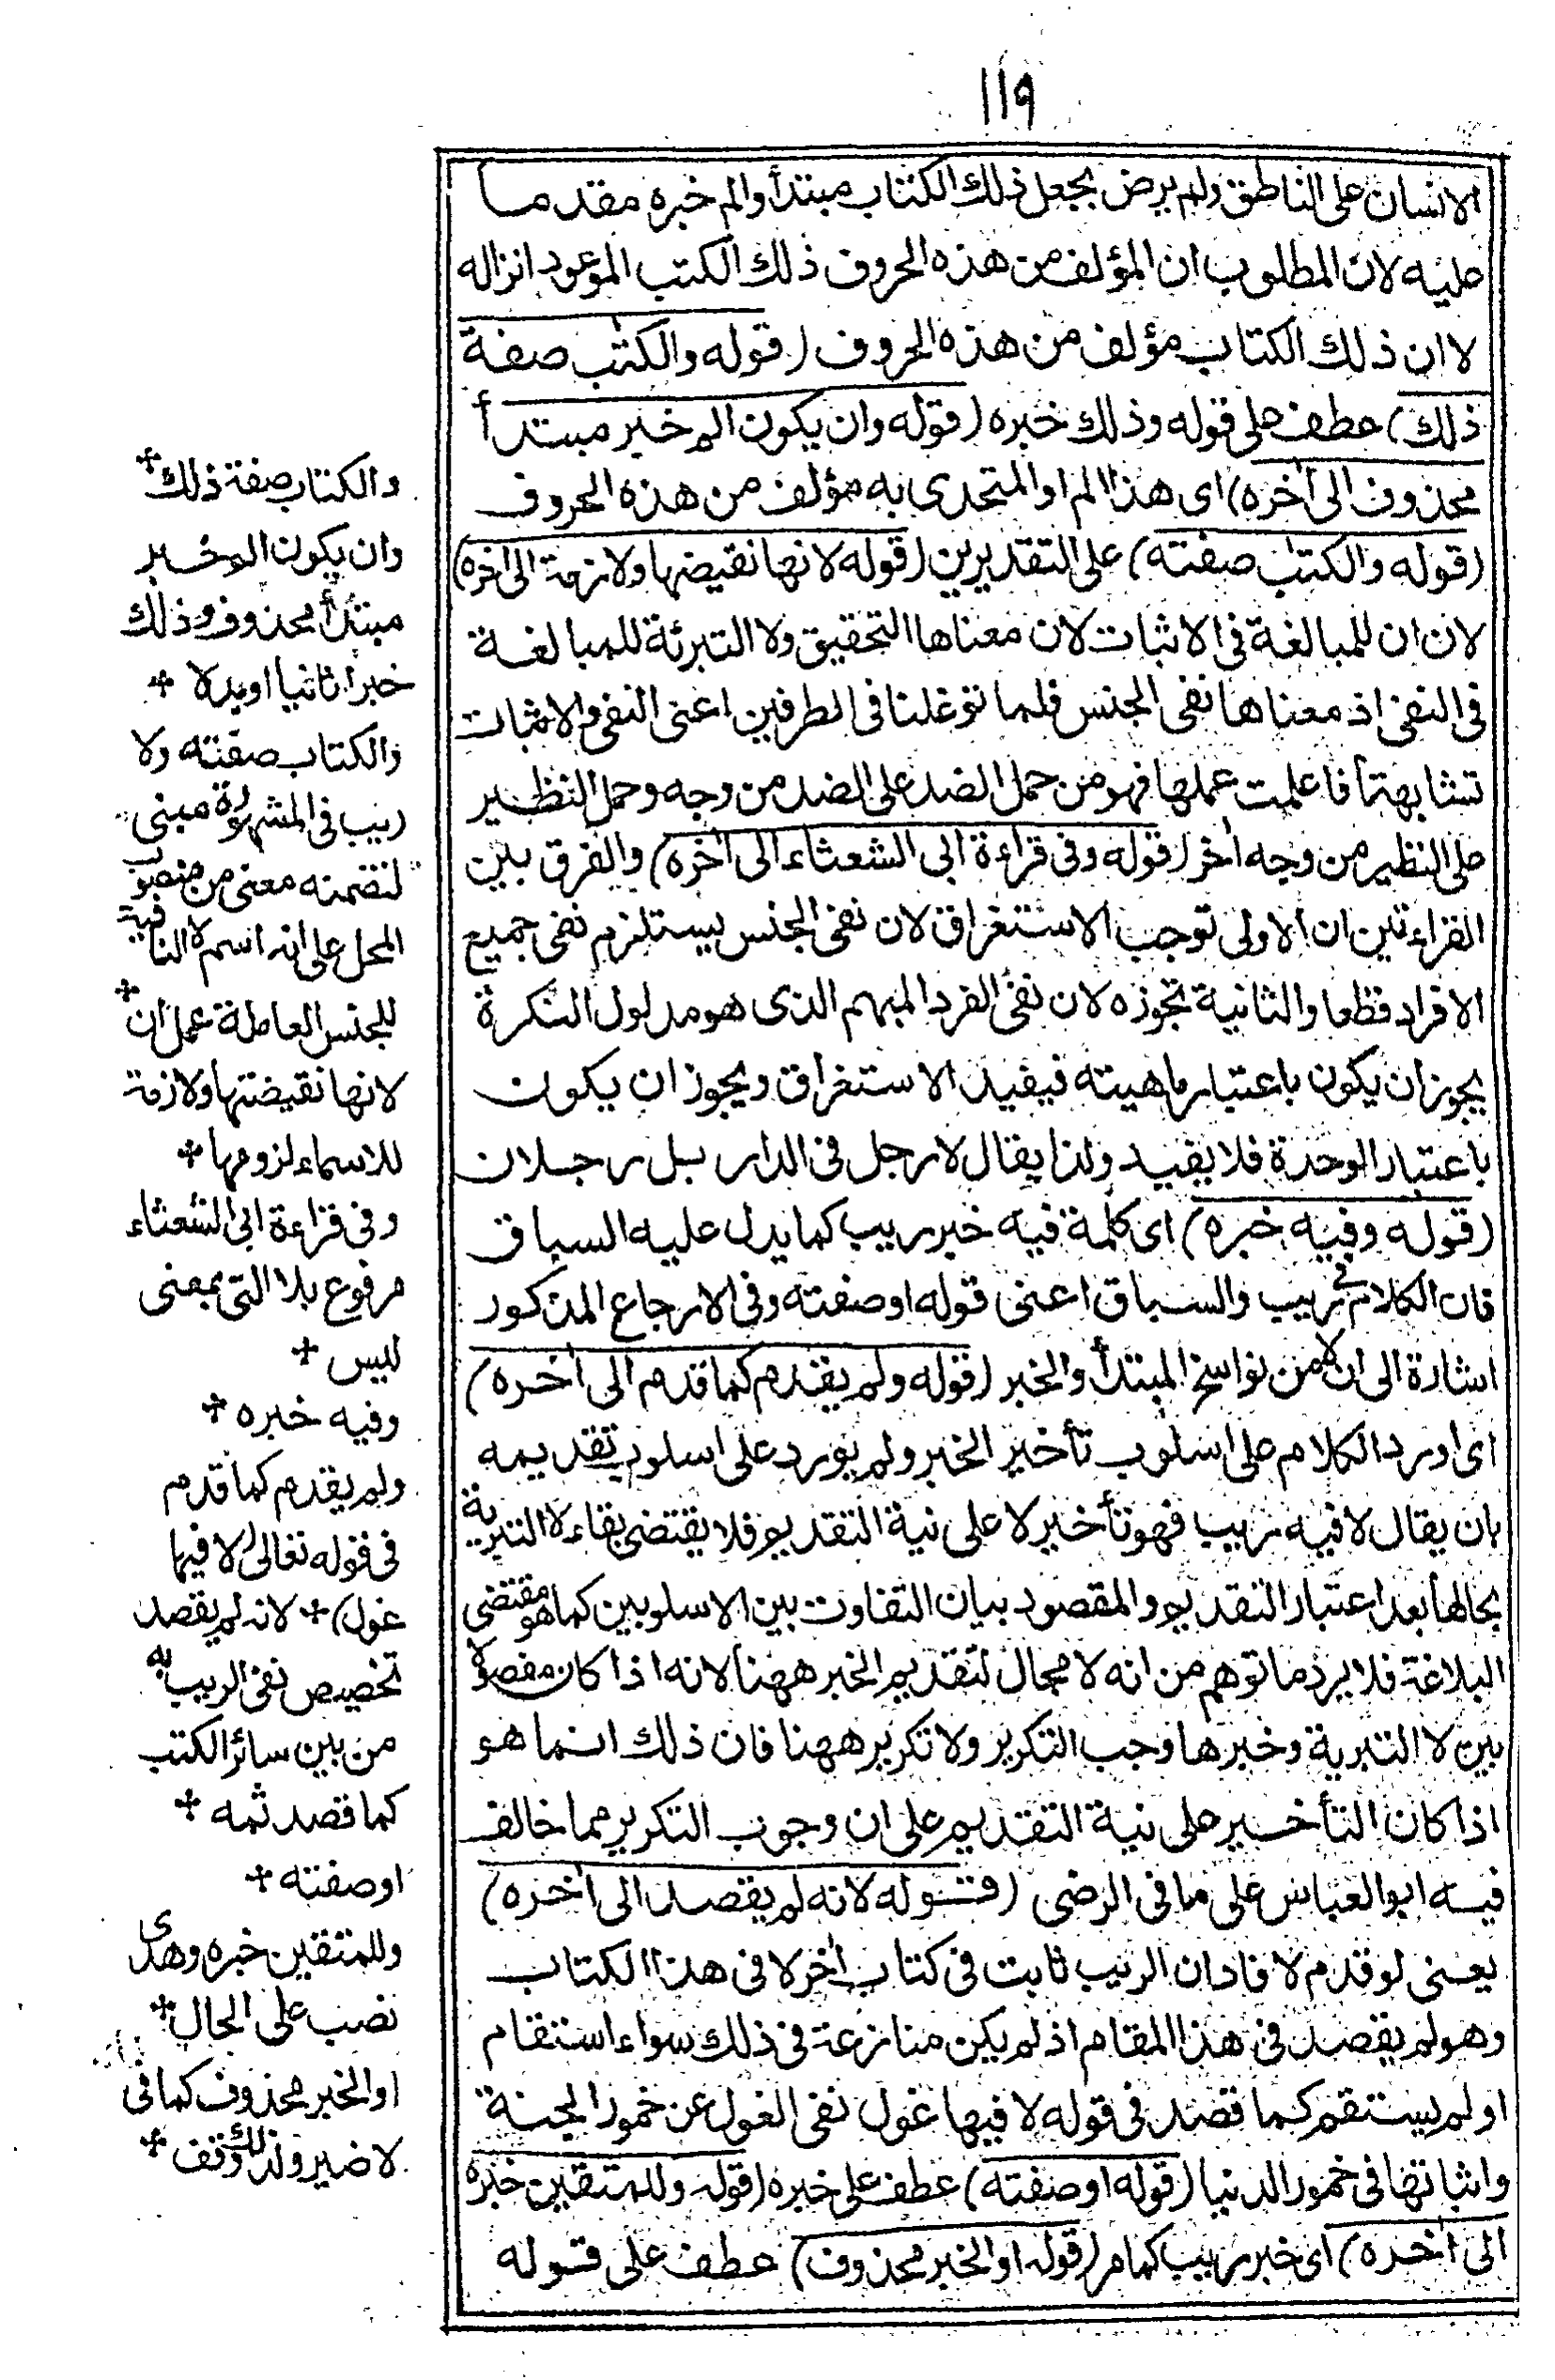 ١١٩
الانسان على الناطق ولم يرض بجعل ذلك الكتاب مبتدأ والم خبره مقدما
عليه لان المطلوب ان المؤلف من هذه الحروف ذلك الكتب الموعود انزاله
لا ان ذلك الكتاب مؤلف من هذه الحروف (قوله والكتب صفة
ذلك) عطف على قوله وذلك خبره (قوله وان يكون الم خبر مبتدأ
محذوف الى آخره) اى هذا الم او المتحدى به مؤلف من هذه الحروف
(قوله والكتب صفته) على التقديرين (قوله لانها نقيضها ولازمة الى اخره)
لان ان للمبالغة فى الاثبات لان معناها التحقيق ولا التبرئة للمبالغة
فى النفى اذ معناها نفى الجنس فلما توغلتا فى الطرفين اعنى النفى والاثبات
تشابهتا فاعلمت عملها فهو من حمل الضد على الضد من وجه وحمل النظير
على النظير من وجه اخر (قوله وفى قراءة ابى الشعثاء الى اخره) والفرق بين
القراءتين ان الاولى توجب الاستغراق لان نفى الجنس يستلزم نفى جميع
الافراد قطعا والثانية تجوزه لان نفى الفرد المبهم الذى هو مدلول النكرة
يجوز ان يكون باعتبار ماهيته فيفيد الاستغراق ويجوز ان يكون
باعتبار الوحدة فلا يفيد ولذا يقال لا رجل فى الدار بل رجلان
(قوله وفيه خبره) اى كلمة فيه خبر ريب كما يدل عليه السباق
فان الكلام فى ريب والسياق اعنى قوله او صفته وفى الارجاع المذكور
اشارة الى ان لا من نواسخ المبتدأ والخبر (قوله ولم يقدم كما قدم الى اخره)
اى اورد الكلام على اسلوب تأخير الخبر ولم يورد على اسلوب تقديمه
بان يقال لا فيه ريب فهو تأخير لا على نية التقديم فلا يقتضى بقاء لا التبرية
بحالها بعد اعتبار التقديم والمقصود بيان التفاوت بين الاسلوبين كما هو مقتضى
البلاغة فلا يرد ما توهم من انه لا مجال لتقديم الخبر ههنا لانه اذا كان مفصولا
بين لا التبرية وخبرها وجب التكرير ولا تكرير ههنا فان ذلك انما هو
اذا كان التأخير على نية التقديم على ان وجوب التكرير مما خالف
فيه ابو العباس على ما فى الرضى (قوله لانه لم يقصد الى اخره)
يعنى لو قدم لافاد ان الريب ثابت فى كتاب اخر لا فى هذا الكتاب
وهو لم يقصد فى هذا المقام اذ لم يكن منازعة فى ذلك سواء استقام
او لم يستقم كما قصد فى قوله لا فيها غول نفى الغول عن خمور الجنة
واثباتها فى خمور الدنيا (قوله او صفته) عطف على خبره (قوله وللمتقين خبره
الى اخره) اى خبر ريب كما مر (قوله او الخبر محذوف) عطف على قوله
والكتاب صفة ذلك
وان يكون الم خبر
مبتدأ محذوف وذلك
خبرا ثانيا او بدلا
والكتاب صفته ولا
ريب فى المشهورة مبنى
لتضمنه معنى من منصوب
المحل على انه اسم لا النافية
للجنس العاملة عمل ان
لانها نقيضتها ولازمة
للاسماء لزومها
وفى قراءة ابى الشعثاء
مرفوع بلا التى بمعنى
ليس
وفيه خبره
ولم يقدم كما قدم
فى قوله تعالى (لا فيها
غول) لانه لم يقصد
تخصيص نفى الريب به
من بين سائر الكتب
كما قصد ثمه
او صفته
وللمتقين خبره وهدى
نصب على الحال
او الخبر محذوف كما فى
لا ضير ولذلك وقف